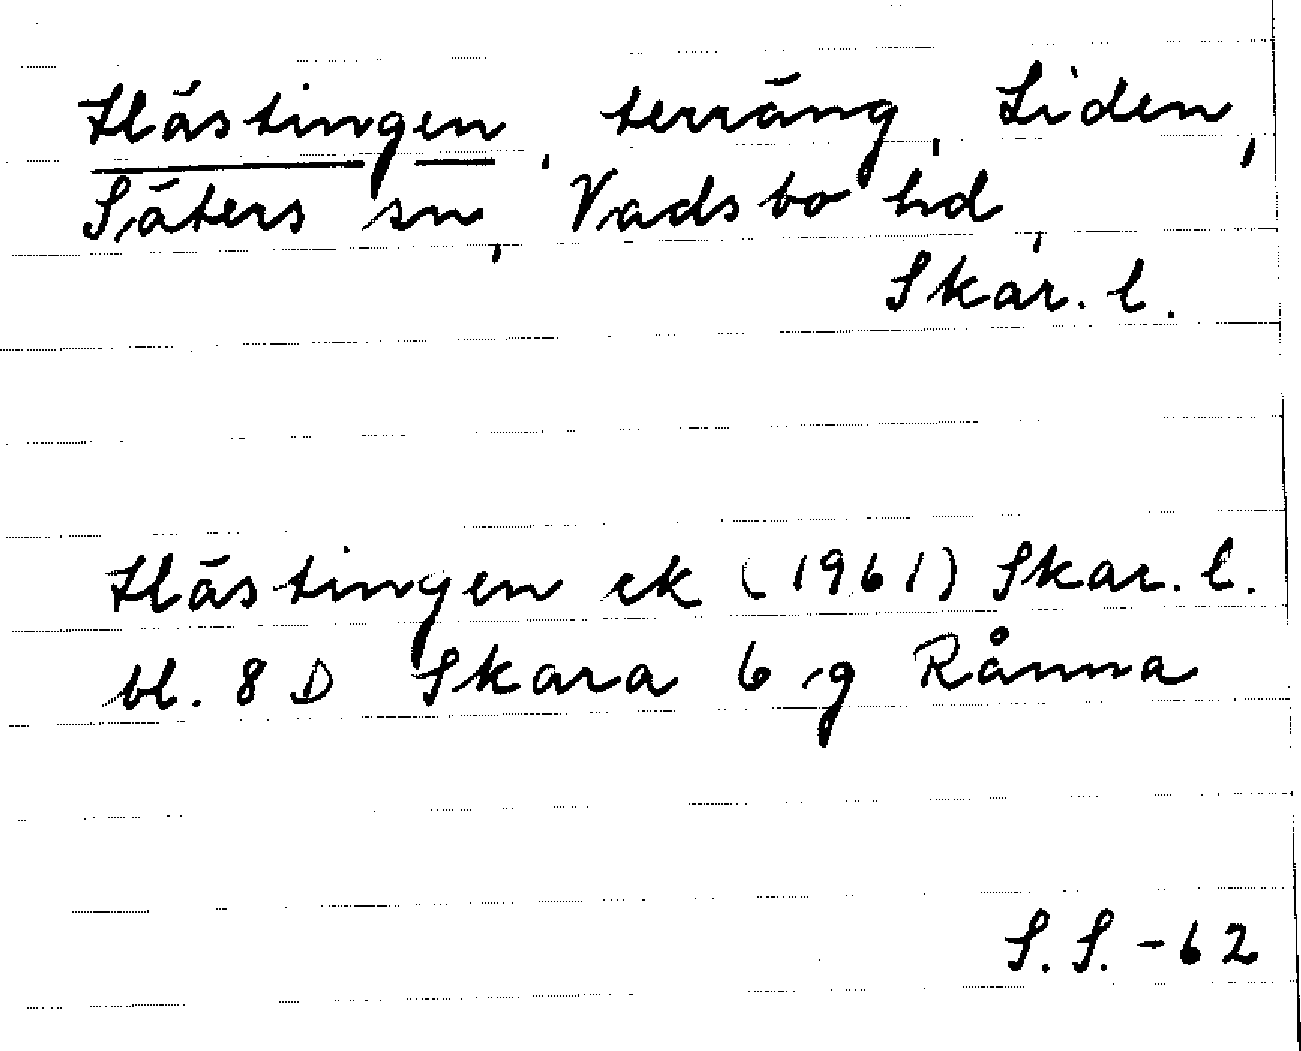 Hästingen, terräng, Liden,
Säters sn, Vadsbo hd,
Skar. l.
Hästingen ek (1961) Skar. l.
bl. 8 D Skara 6 g Rånna
S. S. -62